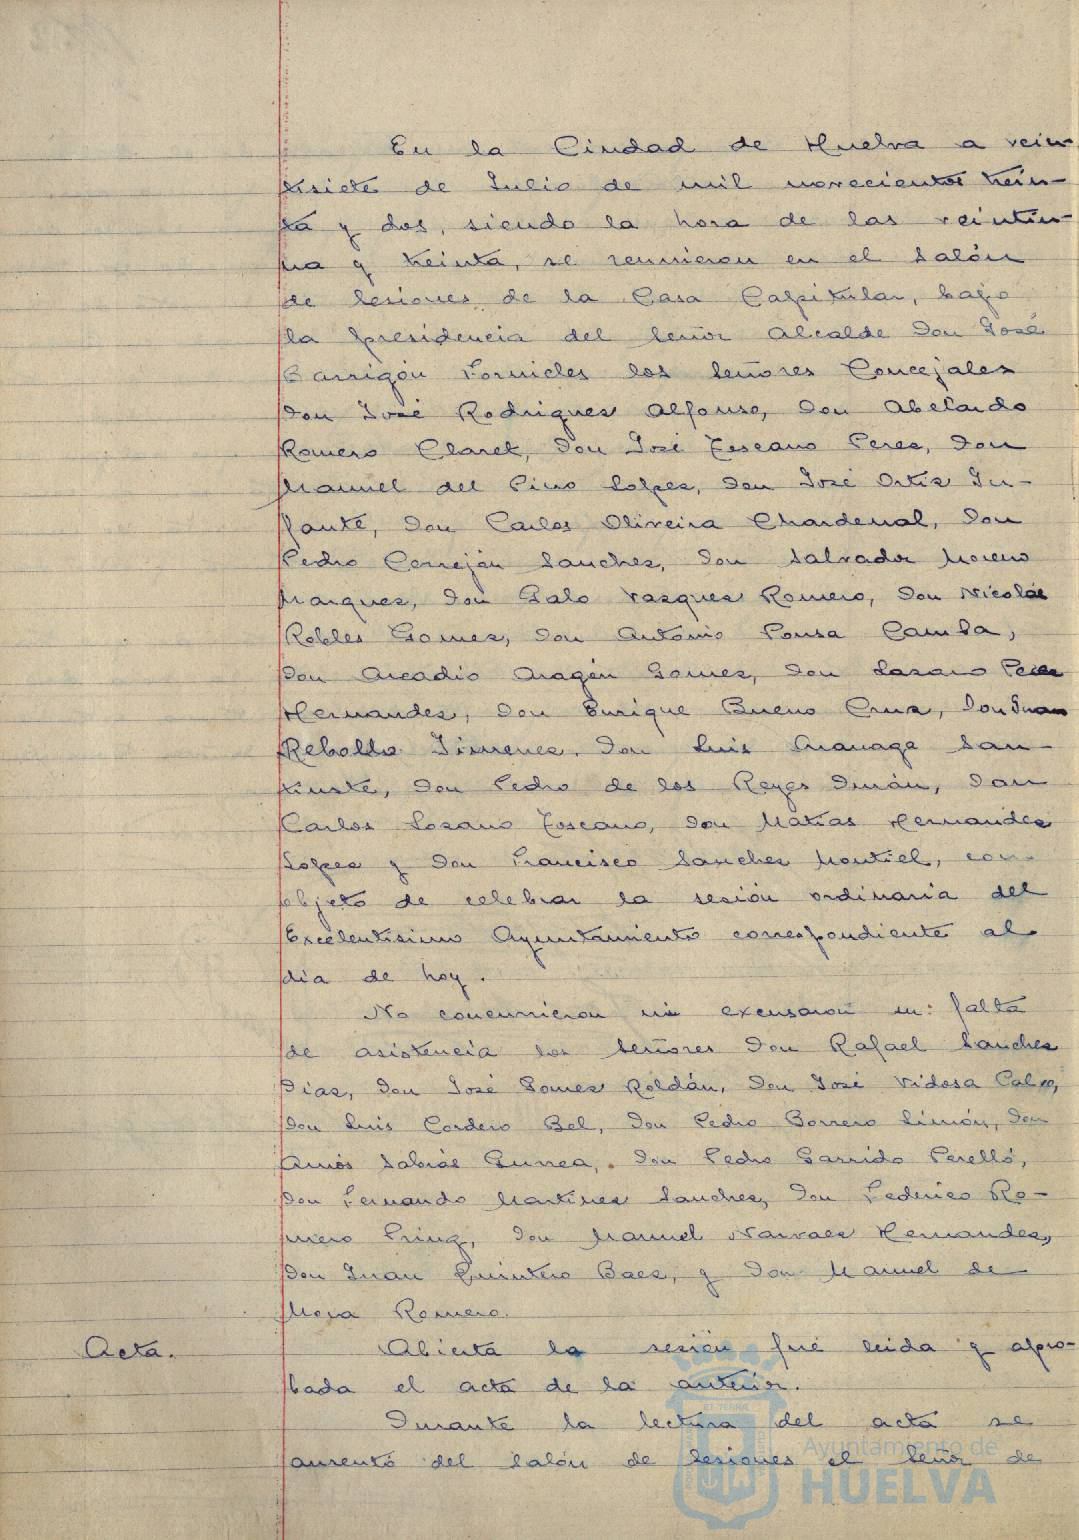 En la Ciudad de Huelva a vein-
tisiete de Julio de mil novecientos trein-
ta y dos, siendo la hora de las veintiu-
na y treinta, se reunieron en el Salón
de Sesiones de la Casa Capitular, bajo
la presidencia del Señor Alcalde Don José
Barrigón Fornieles los Señores Concejales
Don José Rodriguez Alfonso, Don Abelardo
Romero Claret, Don José Toscano Perez, Don
Manuel del Pino Lopez, Don José Ortiz In-
fante, Don Carlos Oliveira Chardenal, Don
Pedro Cerrejón Sanchez, Don Salvador Moreno
Marquez, Don Galo Vazquez Romero, Don Nicolás
Robles Gomez, Don Antonio Pousa Camba,
Don Arcadio Aragón Gomez, Don Lazaro Perez
Hernandez, Don Enrique Bueno Cruz, Don Juan
Rebollo Jimenez, Don Luis Aranaga San-
tiuste, Don Pedro de los Reyes Durán, Don
Carlos Lozano Toscano, Don Matías Hernandez
Lopez y Don Francisco Sanchez Montiel, con
objeto de celebrar la sesión ordinaria del
Excelentísimo Ayuntamiento correspondiente al
dia de hoy.
No concurrieron ni excusaron su falta
de asistencia los Señores Don Rafael Sanchez
Diaz, Don José Gomez Roldán, Don José Vidosa Calvo,
Don Luis Cordero Bel, Don Pedro Borrero Limón, Don
Amós Sabrás Gurrea, Don Pedro Garrido Perelló,
Don Fernando Martinez Sanchez, Don Federico Ro-
mero Prinz, Don Manuel Narvaez Hernandez,
Don Juan Quintero Baez, y Don Manuel de
Mora Romero.
Acta. Abierta la sesión fué leida y apro-
bada el acta de la anterior.
Durante la lectura del acta se
ausentó del Salón de Sesiones el Señor de
Ayuntamiento de
HUELVA